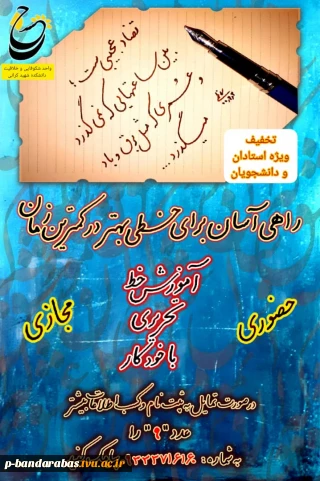 واحد شکوفایی و خلاقیت
دانشکده شهید کرانی
تضاد عجیبی است؛
بین ساعتهایی که نمی گذرد
و عمری که مثل برق و باد
میگذرد...
تخفیف
ویژه استادان
و دانشجویان
راهی آسان برای خطی بهتر در کمترین زمان
آموزش خط
تحریری
با خودکار
حضوری
مجازی
درصورت تمایل به ثبت نام و کسب اطلاعات بیشتر
عدد "۹" را
به شماره :
p-bandarabas.tvu.ac.ir